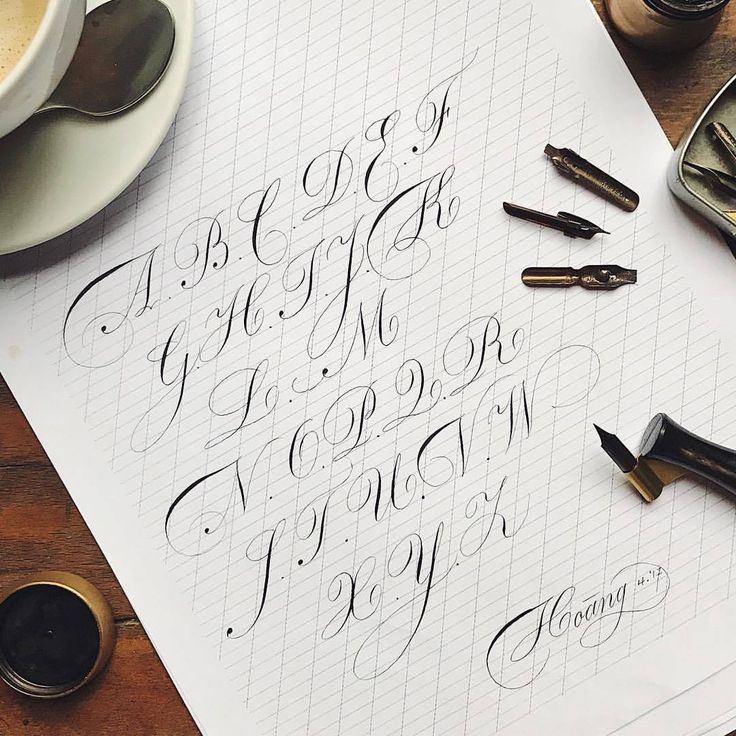 A. B. C. D. E. F
G. H. I. J. K
L. M
N. O. P. Q. R
S. T. U. V. W
X. Y. Z
Hoàng 4.'17